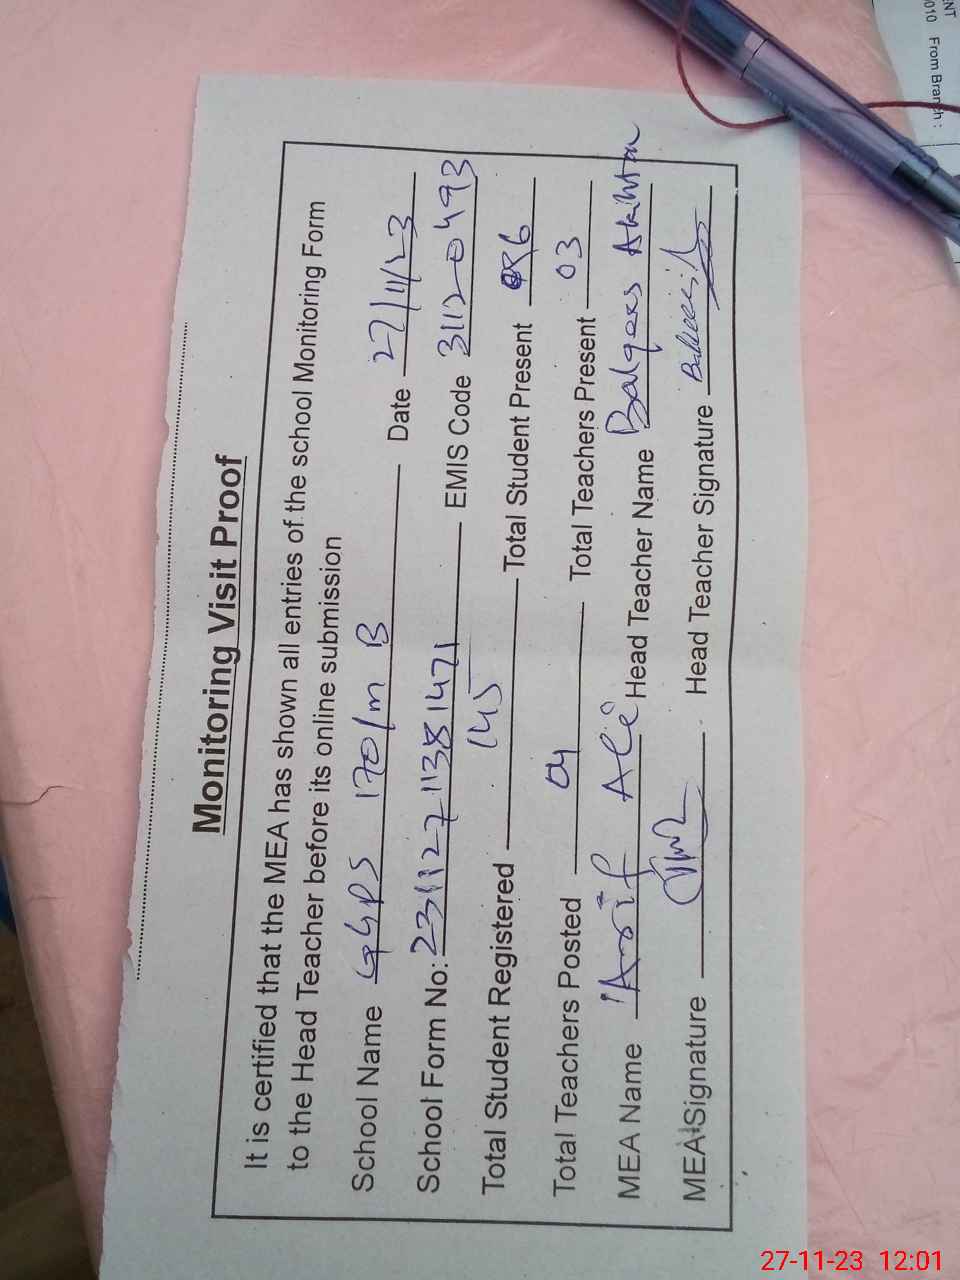 Monitoring Visit Proof
It is certified that the MEA has shown all entries of the school Monitoring Form
to the Head Teacher before its online submission
School Name GGPS 170/m B Date 27/11/23
School Form No: 23112711381471 EMIS Code 31120493
Total Student Registered 145 Total Student Present
Total Teachers Posted 04 Total Teachers Present 03
MEA Name Arif Ali Head Teacher Name Balqees Akhtar
MEA Signature Head Teacher Signature
010 From Branch :
27-11-23 12:01